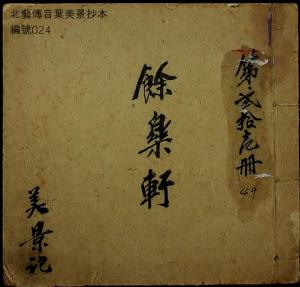 北藝傳音葉美景抄本
編號024
第貳拾壱冊
469
餘樂軒
美景記